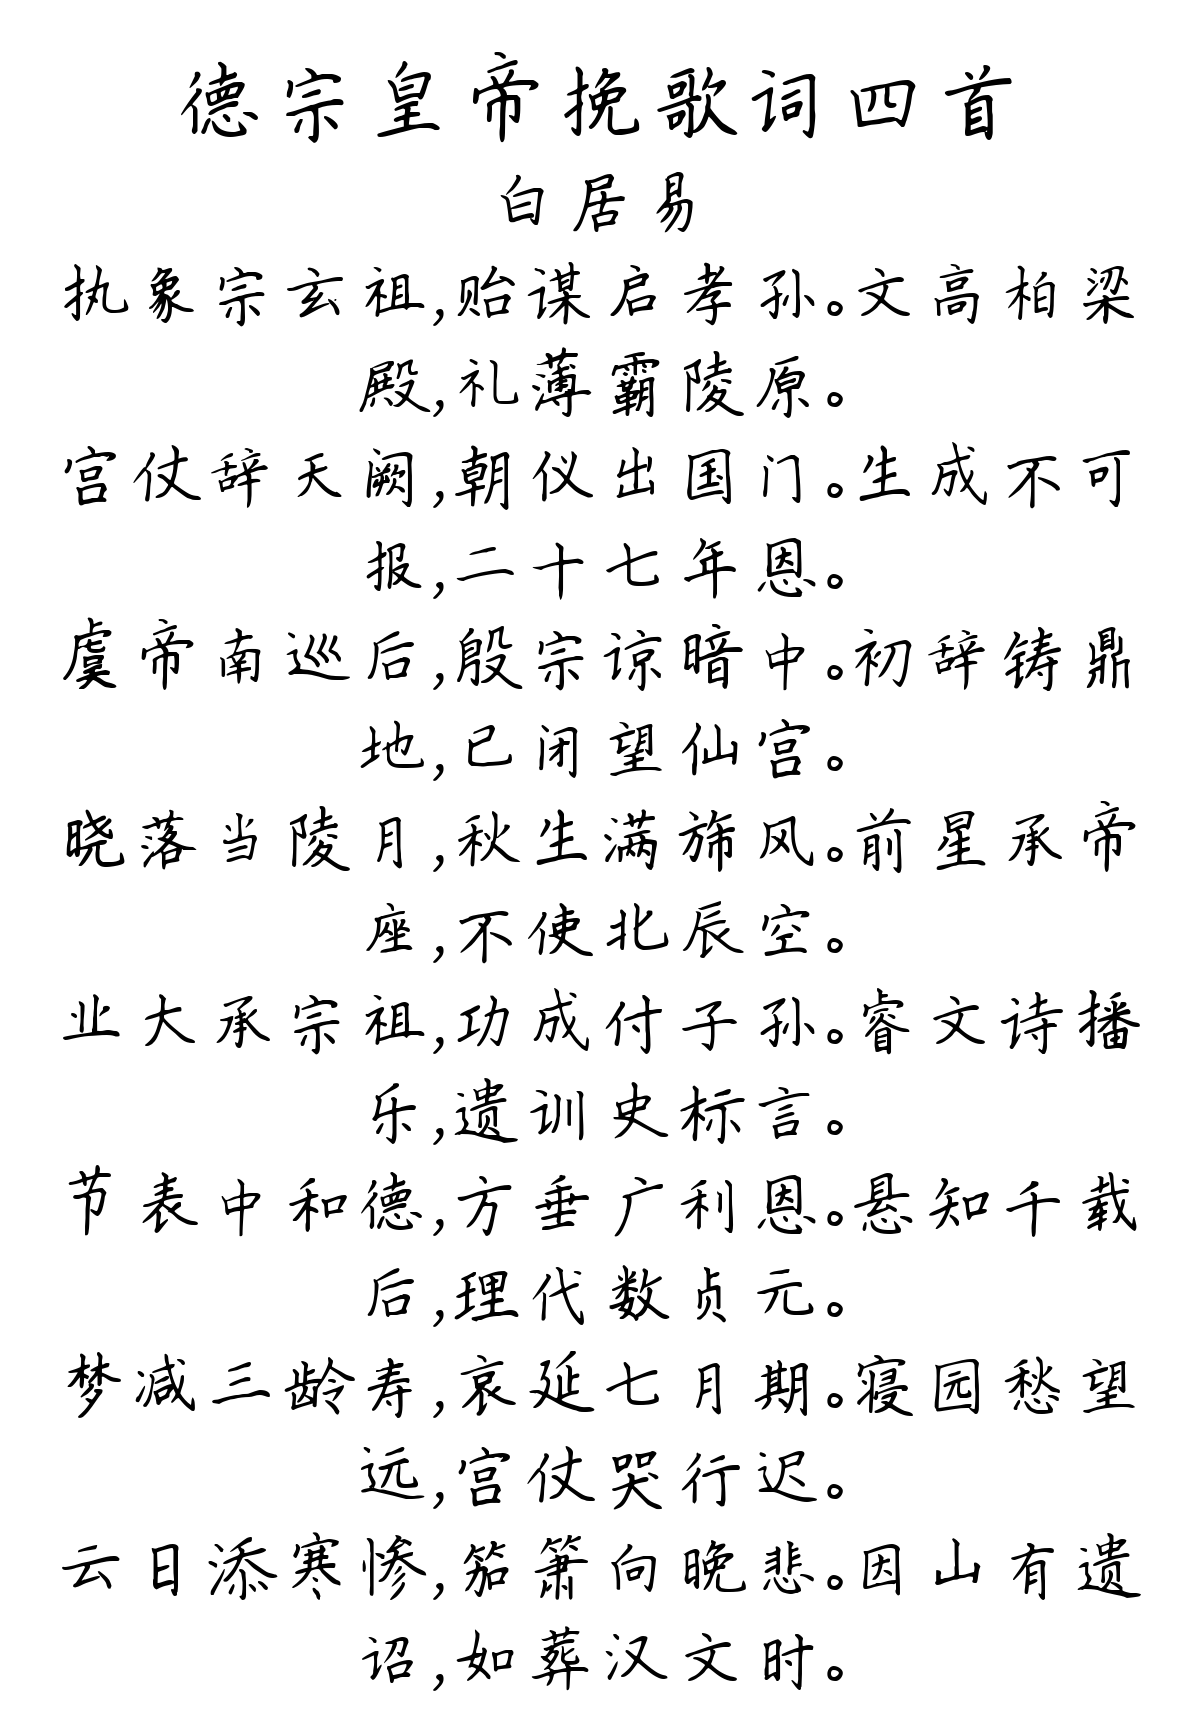 德宗皇帝挽歌词四首
白居易
执象宗玄祖,贻谋启孝孙。文高柏梁
殿,礼薄霸陵原。
宫仗辞天阙,朝仪出国门。生成不可
报,二十七年恩。
虞帝南巡后,殷宗谅暗中。初辞铸鼎
地,已闭望仙宫。
晓落当陵月,秋生满旆风。前星承帝
座,不使北辰空。
业大承宗祖,功成付子孙。睿文诗播
乐,遗训史标言。
节表中和德,方垂广利恩。悬知千载
后,理代数贞元。
梦减三龄寿,哀延七月期。寝园愁望
远,宫仗哭行迟。
云日添寒惨,笳箫向晚悲。因山有遗
诏,如葬汉文时。